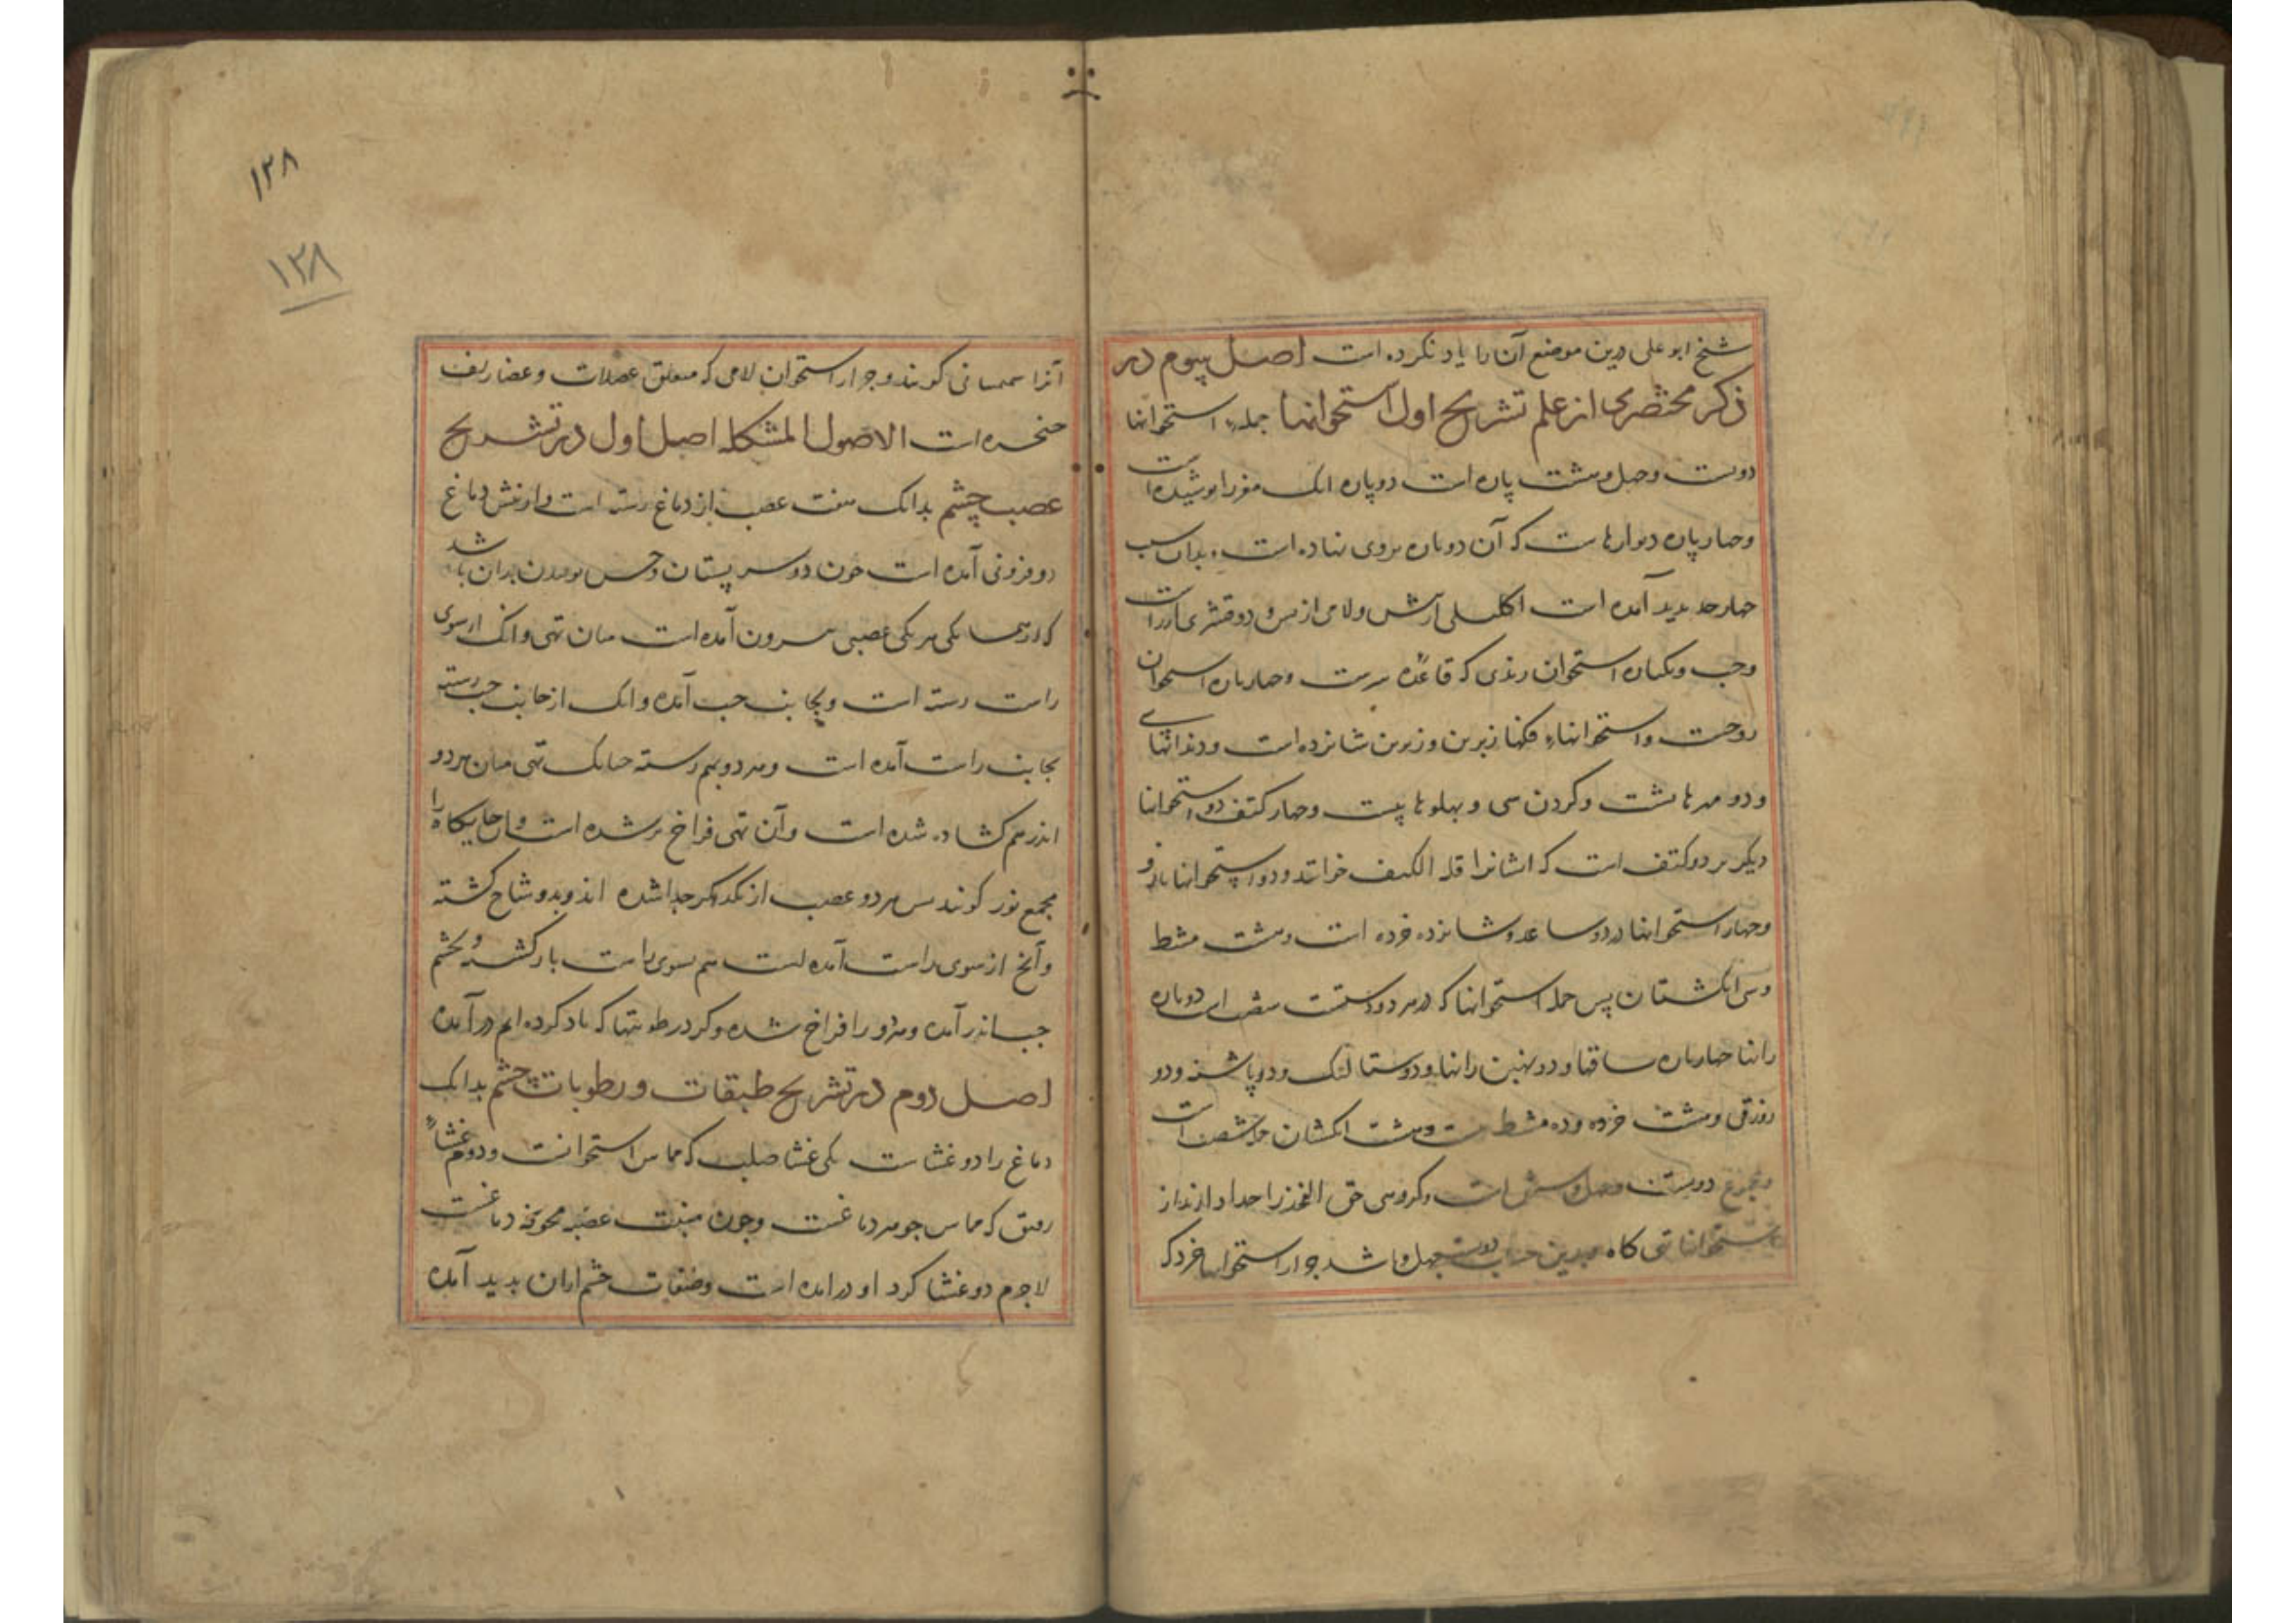 شیخ ابو علی درین موضع آن را یاد نکرده است اصل سیوم در
ذکر مختصری از علم تشریح اول استخوانها جمله استخوانها
دویست وچهل وهشت پاره است دو پاره انک مغز را پوشیده است
وچهار پاره دیوارهاست که آن دو پاره بروی نهاده است و بدان سبب
چهار حد پدید آمده است اکلیلی از پیش ولامی از پس و دو قشری از راست
وچپ ویکپاره استخوان وتدی که قاعده سرست وچهار پاره استخوان
زوجست واستخوانهاء فکها زبرین وزیرین شانزده است ودندانهای
ودو مهرهاء پشت وکردن سی و پهلوها بیست وچهار کتف دو استخوانها
دیکر بر دو کتف است که ایشانرا قلة الکتف خوانند ودو استخوانها بازو
وچهار استخوانها در دو ساعد وشانزده خرده است وهشت مشط
وسی انکشتان پس جمله استخوانها که در هر دو دستست دو پاره
رانها چهار پاره ساقها ودو رانها ودو شتالنک ودو پاشنه ودو
زورقی وهشت خرده وده مشط وبیست وهشت انکشتان
ومجموع دویست وچهل وشش است وکروهی حق الفخذ را جدا دارند از
استخوانها تهی کاه بدین حساب دویست وچهل وباشد جز از استخوانها خرد که
آنرا سمسمانی کویند وجز از استخوان لامی که متعلق عضلات وغضاریف
حنجره است الاصول المشکله اصل اول در تشریح
عصب چشم بدانک هفت عصب از دماغ رسته است واز پیش دماغ
دو فزونی آمده است چون دو سر پستان وحس بوییدن بدان باشد
یکی هر یکی عصبی بیرون آمده است میان تهی وانک از سوی
راست رسته است وبجانب چپ آمده وانک از جانب چپ رسته
بجانب راست آمده است وهر دو بهم رسته چنانک تهی میان هر دو
اندر هم کشاده شده است وآن تهی فراخ تر شده است وآن جایکاه را
مجمع نور کویند پس هر دو عصب از یکدیکر جدا شده اند وبدو شاخ کشته
وآنچ از سوی راست آمده است هم بسوی راست باز کشته وبچشم
چپ اندر آمده وهر دو را فراخ شده وکرد رطوبتها که یاد کرده ایم در آمده
اصل دوم در تشریح طبقات و رطوبات چشم بدانک
دماغ را دو غشاست یکی غشا صلب که مماس استخوانست ودوم غشاء
رقیق که مماس جوهر دماغست وچون منبت عصبه مجوفه دماغست
لاجرم دو غشا کرد او در امده است وطبقات چشم از ان پدید آمده
۱۲۸
۱۲۸